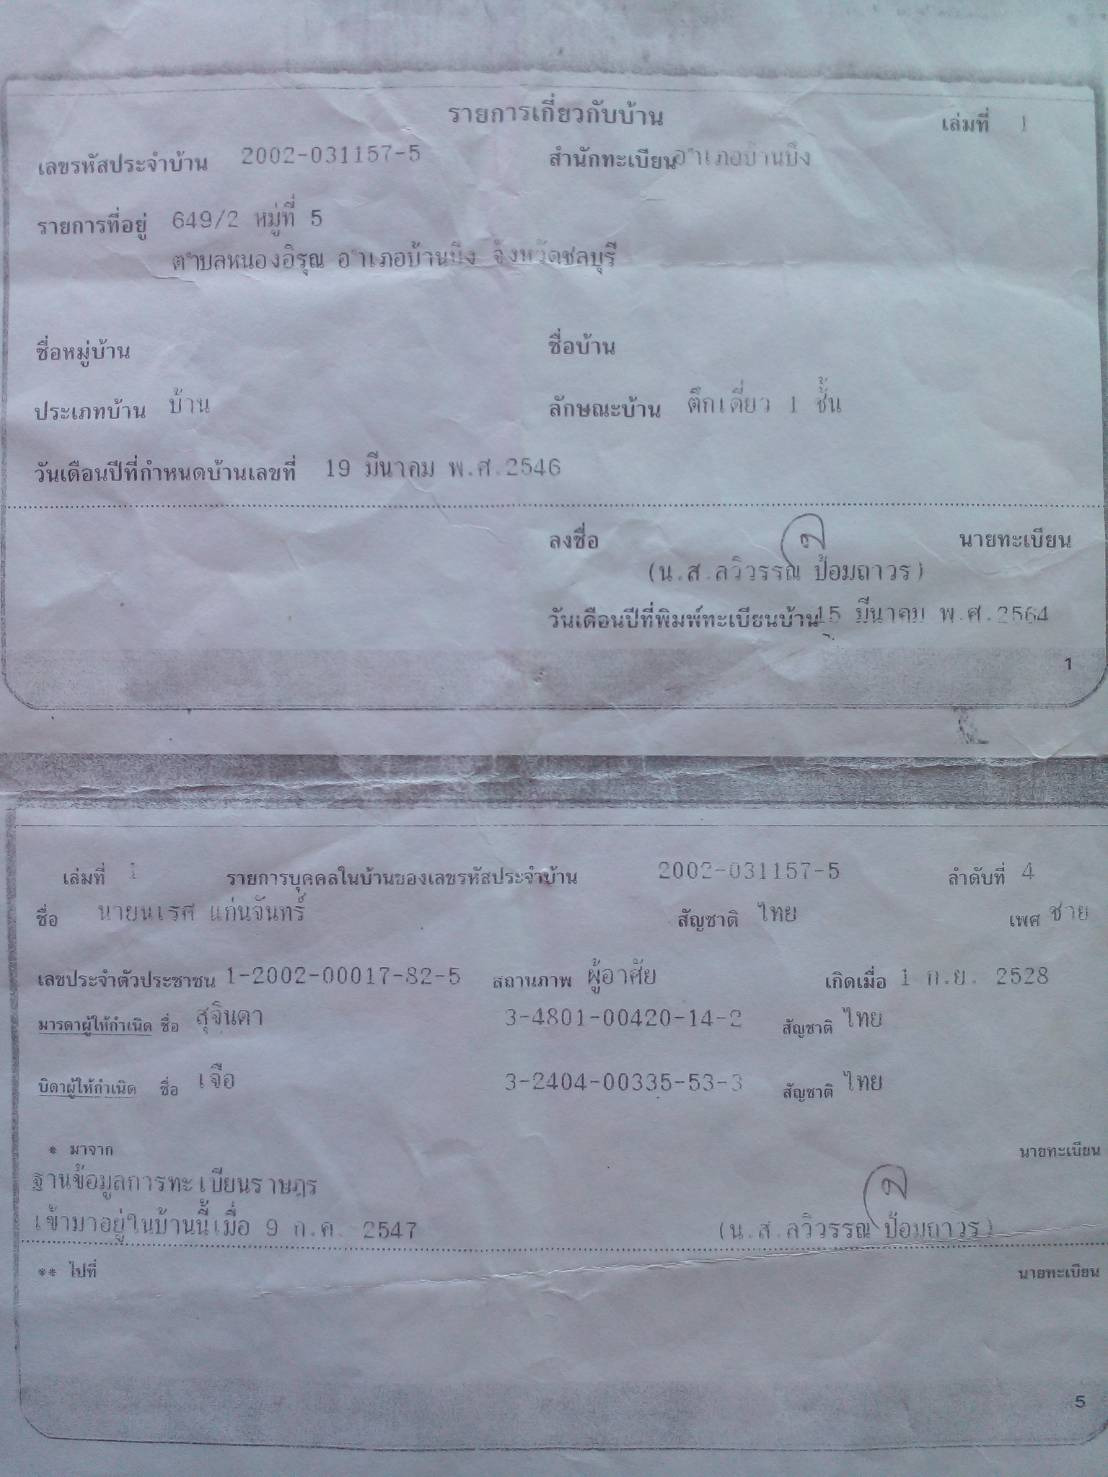 รายการเกี่ยวกับบ้าน
เล่มที่ 1
เลขรหัสประจำบ้าน 2002-031157-5 สำนักทะเบียน อำเภอบ้านบึง
รายการที่อยู่ 649/2 หมู่ที่ 5
ตำบลหนองอิรุณ อำเภอบ้านบึง จังหวัดชลบุรี
ชื่อหมู่บ้าน ชื่อบ้าน
ประเภทบ้าน บ้าน ลักษณะบ้าน ตึกเดี่ยว 1 ชั้น
วันเดือนปีที่กำหนดบ้านเลขที่ 19 มีนาคม พ.ศ.2546
ลงชื่อ นายทะเบียน
(น.ส.ลวิวรรณ ป้อมถาวร)
วันเดือนปีที่พิมพ์ทะเบียนบ้าน 15 มีนาคม พ.ศ.2564
1
เล่มที่ 1 รายการบุคคลในบ้านของเลขรหัสประจำบ้าน 2002-031157-5 ลำดับที่ 4
ชื่อ นายนเรศ แก่นจันทร์ สัญชาติ ไทย เพศ ชาย
เลขประจำตัวประชาชน 1-2002-00017-82-5 สถานภาพ ผู้อาศัย เกิดเมื่อ 1 ก.ย. 2528
มารดาผู้ให้กำเนิด ชื่อ สุจินดา 3-4801-00420-14-2 สัญชาติ ไทย
บิดาผู้ให้กำเนิด ชื่อ เจือ 3-2404-00335-53-3 สัญชาติ ไทย
* มาจาก นายทะเบียน
ฐานข้อมูลการทะเบียนราษฎร
เข้ามาอยู่ในบ้านนี้เมื่อ 9 ก.ค. 2547 (น.ส.ลวิวรรณ ป้อมถาวร)
** ไปที่ นายทะเบียน
5